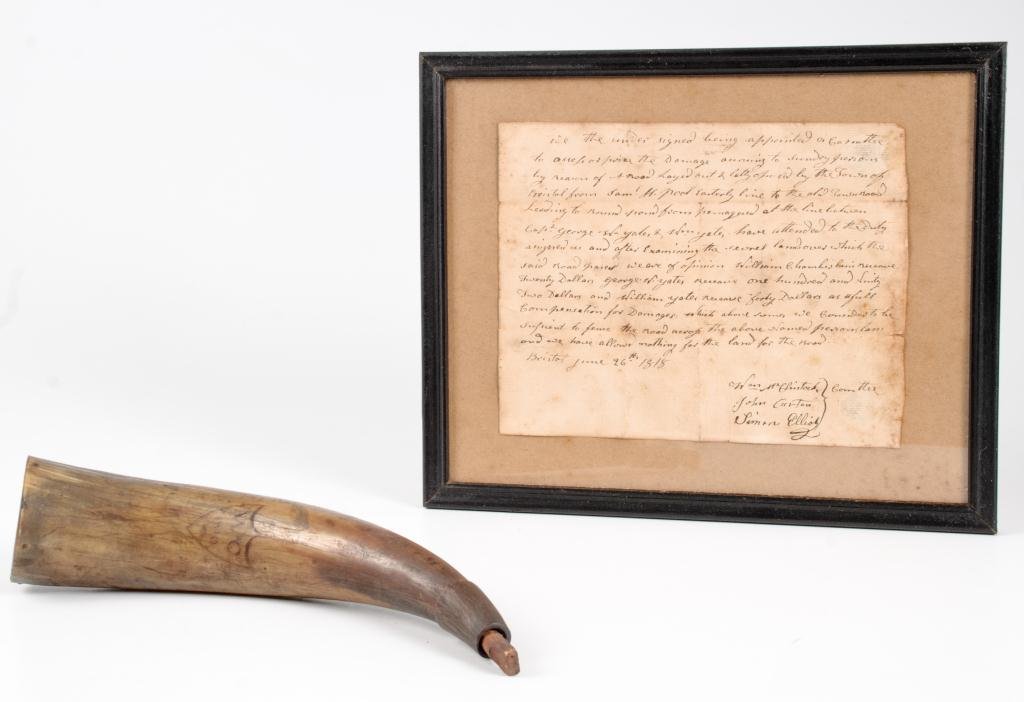 we the under signed being appointed a Comttee
to assess or prise the Damage to sundry persons
by reason of a Road Layed out & by the Town of
Bristol from Saml line to the old Town Road
Leading to Round pond from pemaquid at the line between
Capt. George W Yates & Wm Yates, have attended to the duty
asigned us and after Examining the landoners which the
said Road passes we are of opinion William Chamberlain receve
Twenty Dollars George W Yates receve one hundred and
Two Dollars and William Yates receve forty Dollars as a full
Compensation for Damages, which above somes we Consider to be
sufisent to fence the Road across the above named persons
and we have allowd nothing for the land for the Road
Bristol June 26th 1818
Wm McClintock } Comttee
John
Simon Elliot